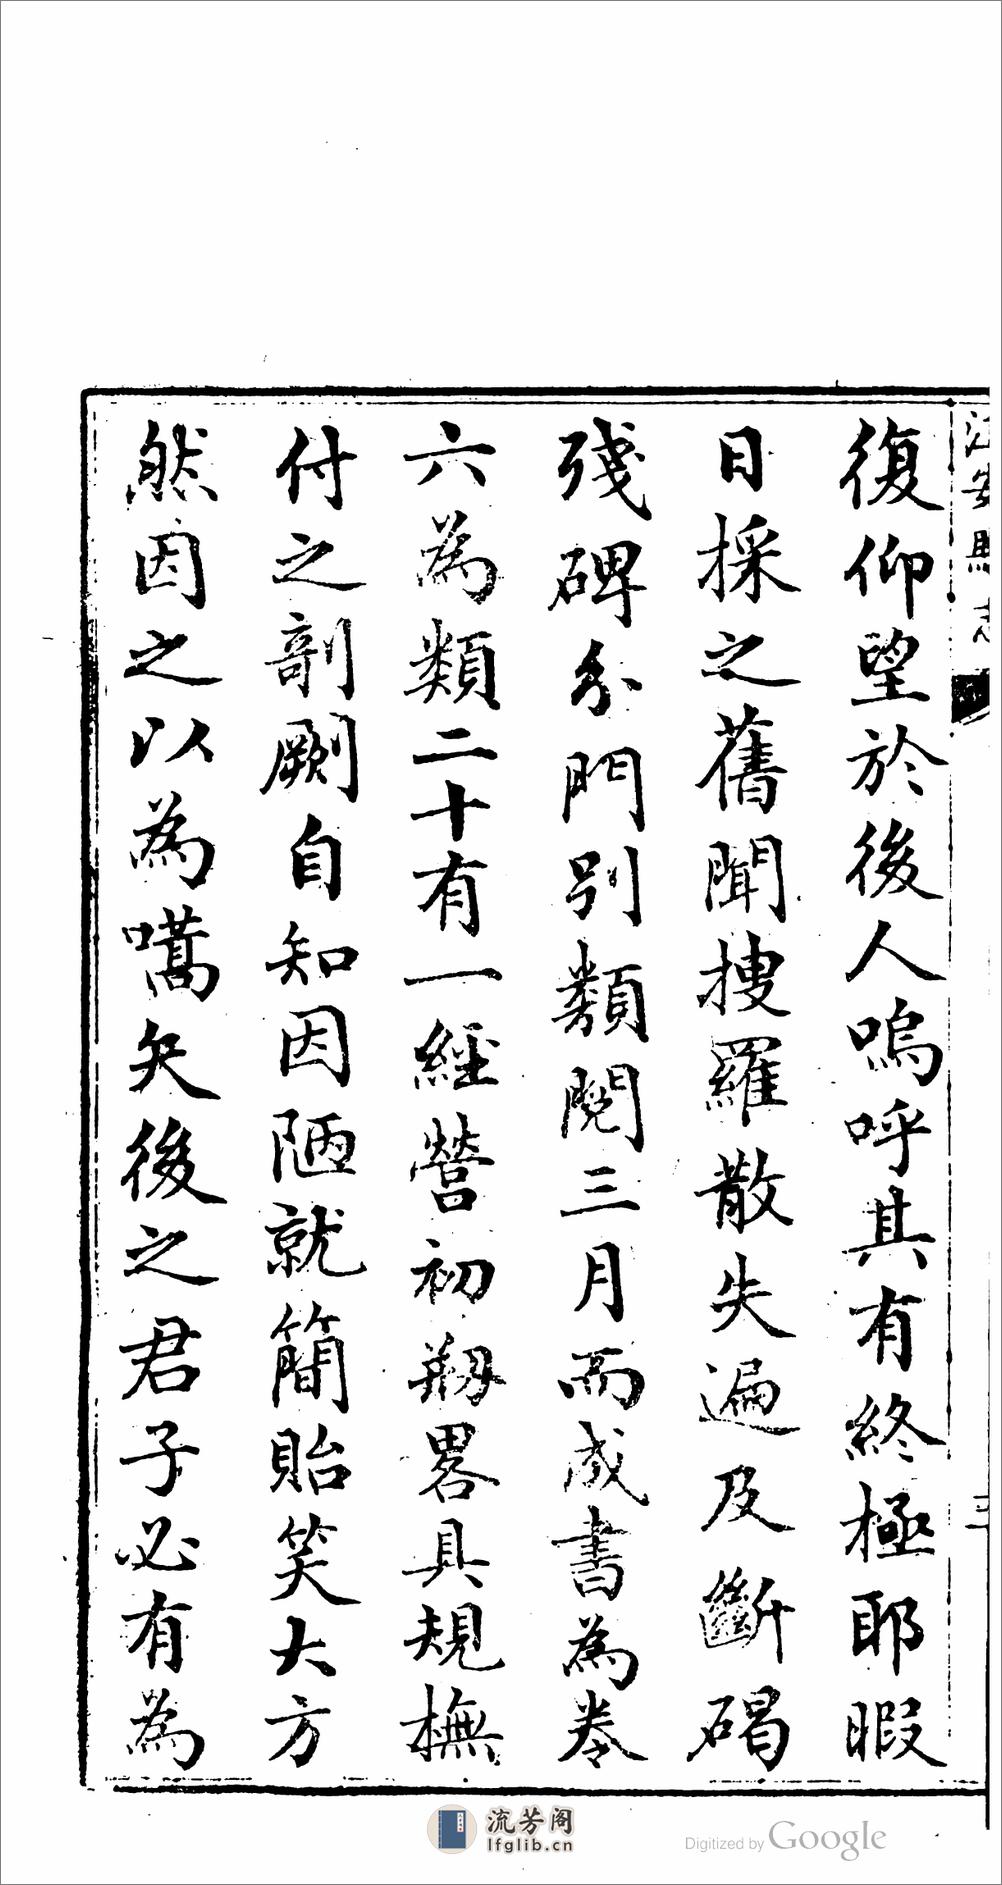 復仰望於後人嗚呼其有終極耶暇
日採之舊聞搜羅散失遍及斷碣
殘碑分門別類閱三月而成書為卷
六為類二十有一經營初剏畧具規橅
付之剞劂自知因陋就簡貽笑大方
然因之以為嚆矢後之君子必有為
江安縣志
流芳阁
lfglib.cn
Digitized by Google